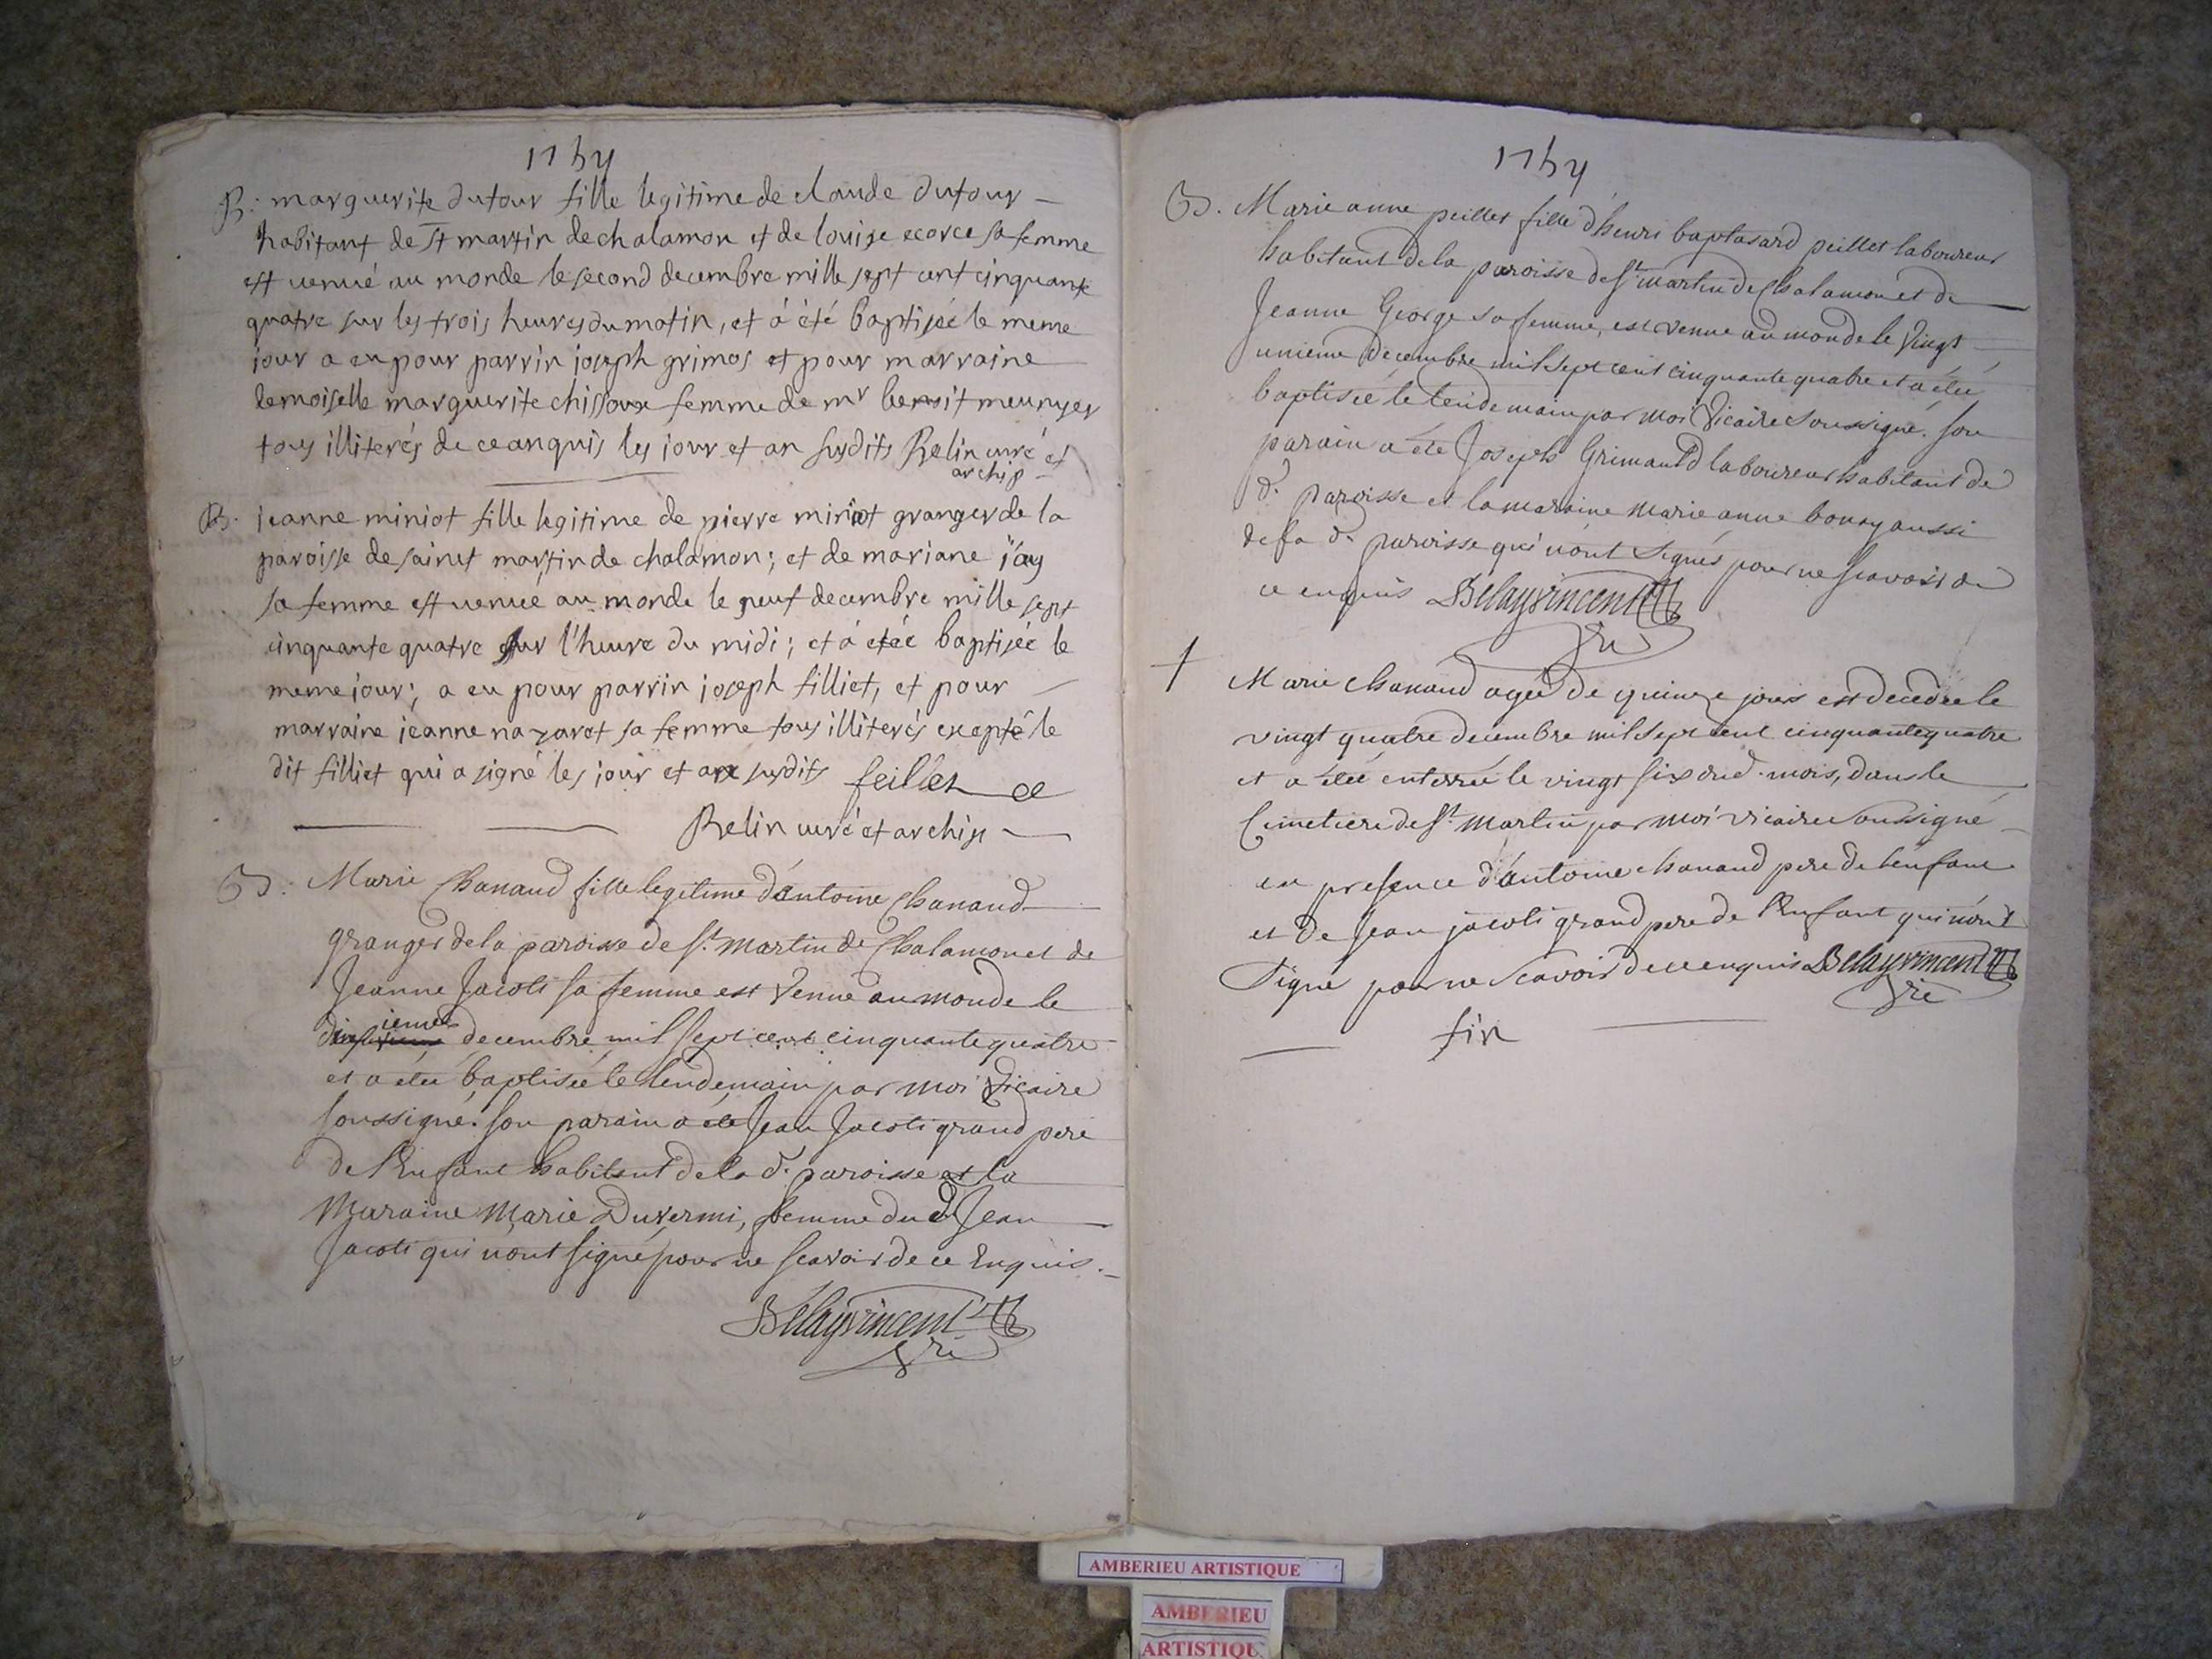 1754
B: marguerite dutour fille legitime de claude dutour
habitant de St martin de chalamon et de louise ecorce sa femme
est venuë au monde le second decembre mille sept cent cinquante
quatre sur les trois heures du matin, et á été baptisée le meme
jour a eu pour parrin joseph grimos et pour marraine
demoiselle marguerite femme de mr benoit meunyer
tous illiterés de ce anquis les jour et an susdits Relin curé et
archip
B. jeanne miniot fille legitime de pierre miniot granger de la
paroisse de sainct martin de chalamon; et de mariane j'ay
sa femme est venuë au monde le neuf decembre mille sept
cinquante quatre sur l'heure du midi; et á etée baptisée le
meme jour; a eu pour parrin joseph filliet, et pour
marraine jeanne nazaret sa femme tous illiterés excepté le
dit filliet qui a signé les jour et an susdits feillet
Relin curé et archip
B: Marie Chanaud fille legitime d'antoine Chanaud
granger de la paroisse de St. Martin de Chalamon et de
Jeanne Jacoti sa femme est venue au monde le
ieme decembre mil sept cent cinquante quatre
et a eteé baptiseé le lendemain par moi Vicaire
soussigné. son parain a eté Jean Jacoti grand pere
de l'Enfant habitant de la d. paroisse et la
Maraine Marie Duvermi, femme du d. Jean
Jacoti qui n'ont signé pour ne scavoir de ce Enquis.
Belayvincent
Vre
1754
B. Marie anne peillet fille d'henri baptasard peillet laboureur
habitant de la paroisse de St martin de Chalamon et de
Jeanne George sa femme, est venue au monde le Vingt
unieme decembre mil sept cent cinquante quatre et a éteé
baptiseé le lendemain par moi Vicaire soussigné. son
parain a été Joseph Grimauld laboureur habitant de
d. paroisse et la maraine marie anne boury aussi
de la d. paroisse qui n'ont signés pour ne scavoir de
ce enquis Belayvincent
Vre
† Marie chanaud ageé de quinze jours est decedeé le
vingt quatre decembre mil sept cent cinquante quatre
et a éteé enterreé le vingt six dud. mois, dans le
Cimetiere de St. Martin par moi vicaire soussigné
en presence d'antoine chanaud pere de l'enfant
et de Jean jacoti grand pere de l'Enfant qui n'ont
signé pour ne scavoir de ce enquis Belayvincent
Vre
fin
AMBERIEU ARTISTIQUE
AMBERIEU
ARTISTIQU